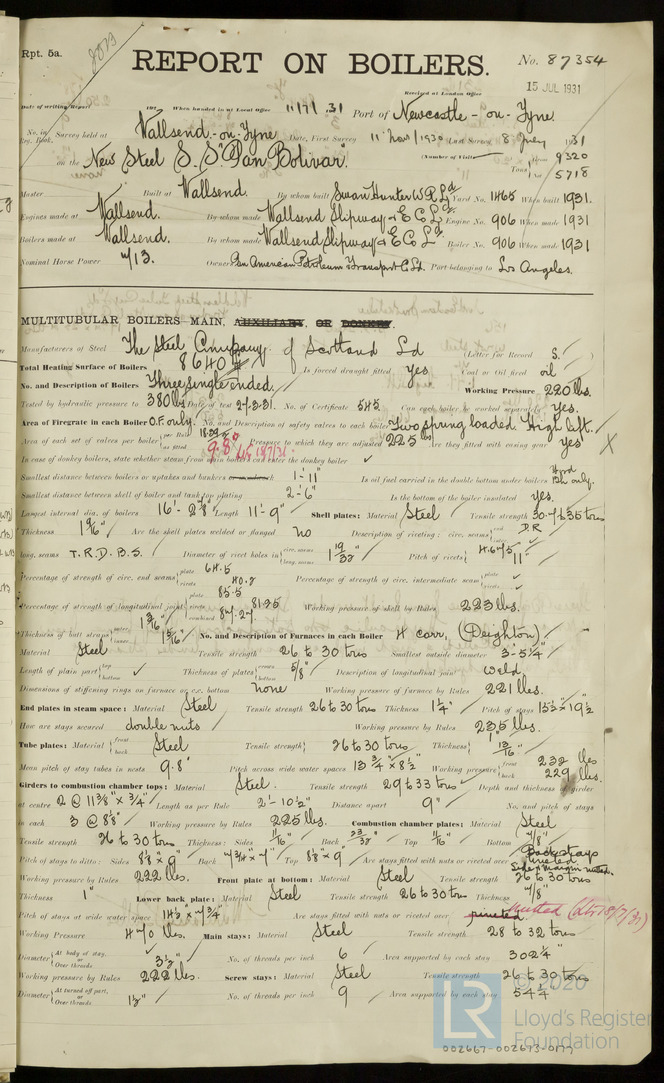 Rpt. 5a.
REPORT ON BOILERS.
No. 87354
Received at London Office
15 JUL 1931
Date of writing Report 192 When handed in at Local Office 11/7/31 Port of Newcastle-on-Tyne.
No. in Reg. Book. Survey held at Wallsend-on-Tyne Date, First Survey 11 Nov/1930 Last Survey 8 July 1931
on the New Steel S.S. "Pan Bolivar" (Number of Visits) Tons Gross 9320 Net 5718
Master Built at Wallsend. By whom built Swan Hunter W R Ld Yard No. 1465 When built 1931.
Engines made at Wallsend. By whom made Wallsend Slipway & E Co Ld Engine No. 906 When made 1931
Boilers made at Wallsend. By whom made Wallsend Slipway & E C Ld Boiler No. 906 When made 1931
Nominal Horse Power 713. Owners Pan American Petroleum & Transport Co Ld. Port belonging to Los Angeles.
MULTITUBULAR BOILERS MAIN, AUXILIARY, OR DONKEY.
Manufacturers of Steel The Steel Company of Scotland Ld (Letter for Record S.)
Total Heating Surface of Boilers 8640 Is forced draught fitted yes Coal or Oil fired oil
No. and Description of Boilers Three single ended. Working Pressure 220 lbs.
Tested by hydraulic pressure to 380 lbs Date of test 27.3.31. No. of Certificate 545 Can each boiler be worked separately yes.
Area of Firegrate in each Boiler O.F. only. No. and Description of safety valves to each boiler Two spring loaded. High lift.
Area of each set of valves per boiler per Rule as fitted 9.8 Pressure to which they are adjusted 225 lbs Are they fitted with easing gear yes
In case of donkey boilers, state whether steam from main boilers can enter the donkey boiler ✓
Smallest distance between boilers or uptakes and bunkers or woodwork 1'-11" Is oil fuel carried in the double bottom under boilers only.
Smallest distance between shell of boiler and tank top plating 2'-6" Is the bottom of the boiler insulated yes.
Largest internal dia. of boilers 16'-2⅞" Length 11'-9" Shell plates: Material Steel Tensile strength 30.7/35 tons
Thickness 1 9/16" Are the shell plates welded or flanged no Description of riveting: circ. seams end D.R
long. seams T.R.D.B.S. Diameter of rivet holes in circ. seams long. seams 1 19/32" Pitch of rivets 4.675 11"
Percentage of strength of circ. end seams plate 64.5 rivets 40.7 Percentage of strength of circ. intermediate seam plate ✓ rivets ✓
Percentage of strength of longitudinal joint plate 85.5 rivets 81.35 combined 87.27 Working pressure of shell by Rules 223 lbs.
Thickness of butt straps outer 1 3/16" inner 1 5/16" No. and Description of Furnaces in each Boiler 4 corr, (Deighton)
Material Steel Tensile strength 26 to 30 tons Smallest outside diameter 3'-5¼"
Length of plain part top bottom ✓ Thickness of plates crown bottom 5/8" Description of longitudinal joint weld
Dimensions of stiffening rings on furnace or c.c. bottom none Working pressure of furnace by Rules 221 lbs.
End plates in steam space: Material Steel Tensile strength 26 to 30 tons Thickness 1¼" Pitch of stays 15½" x 19½
How are stays secured double nuts Working pressure by Rules 235 lbs.
Tube plates: Material front back Steel Tensile strength 26 to 30 tons Thickness 1" 13/16"
Mean pitch of stay tubes in nests 9.8" Pitch across wide water spaces 13¾ x 8½ Working pressure front 232 lbs back 229 lbs.
Girders to combustion chamber tops: Material Steel. Tensile strength 29 to 33 tons Depth and thickness of girder
at centre 2 @ 11⅜" x ¾" Length as per Rule 2'-10½" Distance apart 9" No. and pitch of stays
in each 3 @ 8⅛" Working pressure by Rules 225 lbs. Combustion chamber plates: Material Steel
Tensile strength 26 to 30 tons Thickness: Sides 11/16" Back 23/32" Top 11/16" Bottom 7/8"
Pitch of stays to ditto: Sides 8⅛ x 9" Back 7¾ x 7" Top 8⅛ x 9" Are stays fitted with nuts or riveted over Back stays riveted. Side & margin nutted.
Working pressure by Rules 222 lbs. Front plate at bottom: Material Steel Tensile strength 26 to 30 tons
Thickness 1" Lower back plate: Material Steel Tensile strength 26 to 30 tons Thickness 7/8"
Pitch of stays at wide water space 14½ x 7¾" Are stays fitted with nuts or riveted over riveted nutted
Working Pressure 470 lbs. Main stays: Material Steel Tensile strength 28 to 32 tons
Diameter At body of stay, or Over threads 3½" No. of threads per inch 6 Area supported by each stay 302¼"
Working pressure by Rules 222 lbs. Screw stays: Material Steel Tensile strength 26 to 30 tons
Diameter At turned off part, or Over threads 1½" No. of threads per inch 9 Area supported by each stay 54¼
© 2020
LR
Lloyd's Register
Foundation
002667-002673-0177